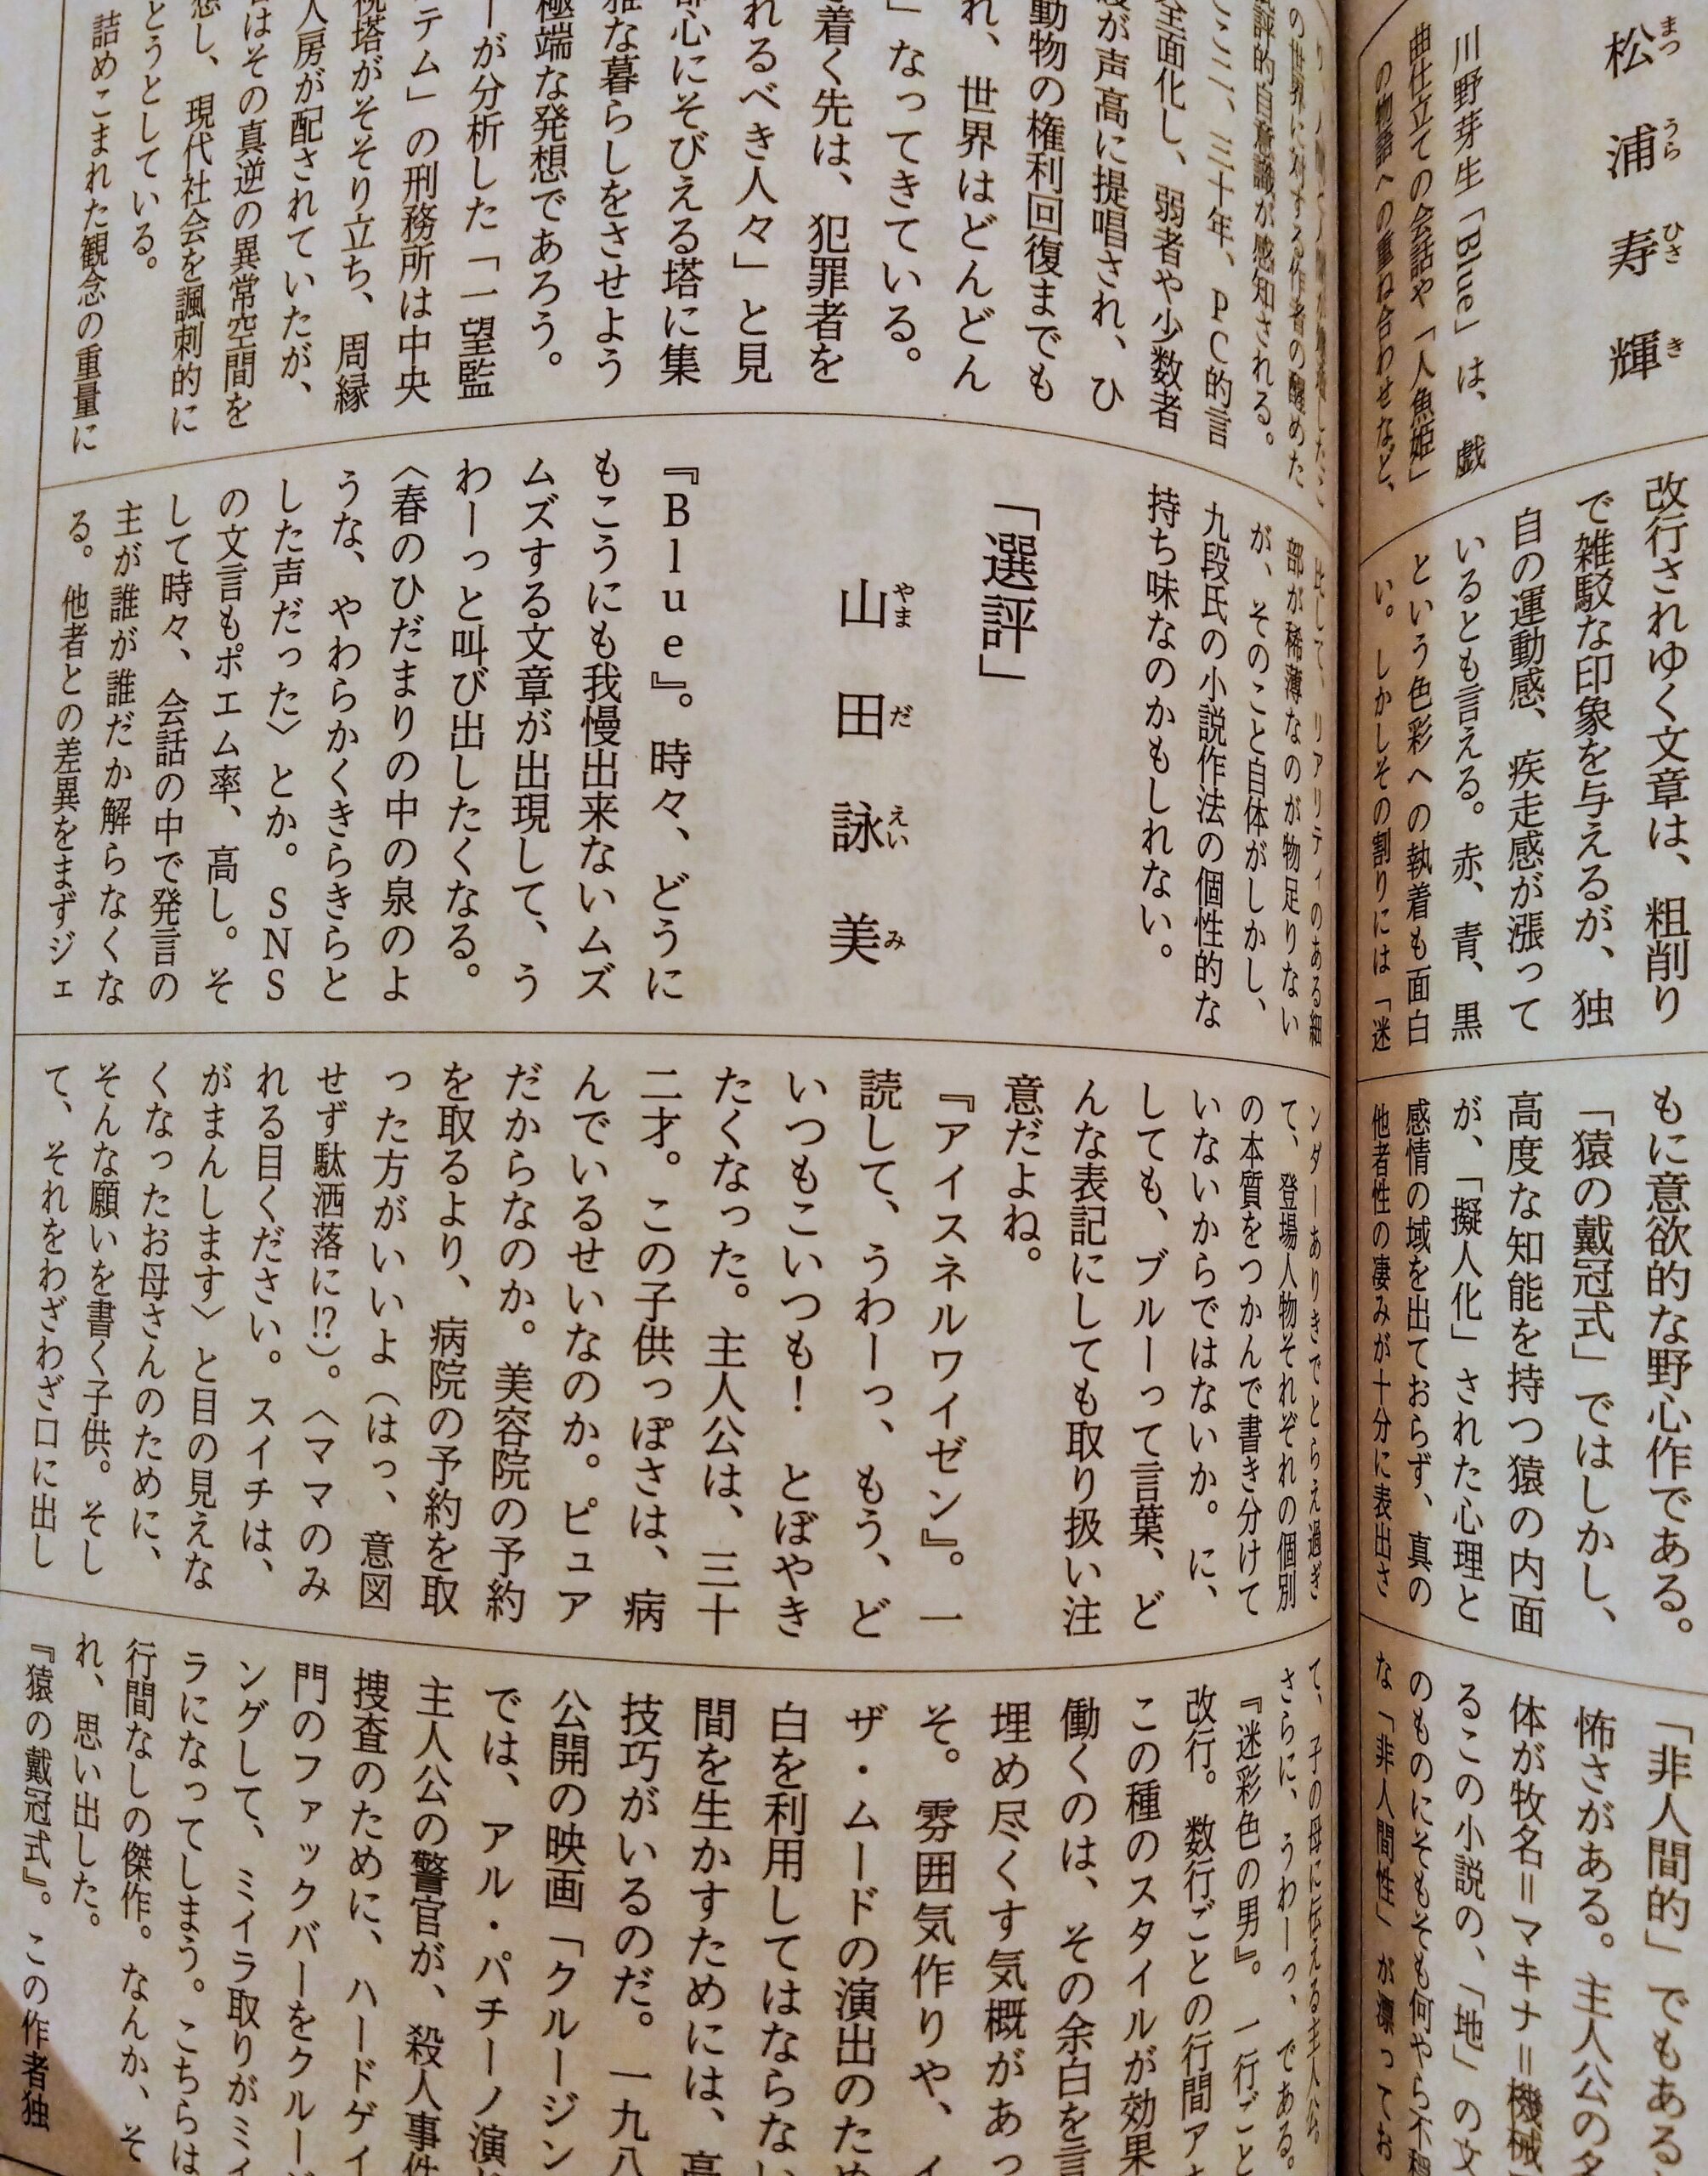 松浦寿輝
まつうらひさき
川野芽生「Blue」は、戯
曲仕立ての会話や「人魚姫」
の物語への重ね合わせなど、
改行されゆく文章は、粗削り
で雑駁な印象を与えるが、独
自の運動感、疾走感が漲って
いるとも言える。赤、青、黒
という色彩への執着も面白
い。しかしその割りには「迷
もに意欲的な野心作である。
「猿の戴冠式」ではしかし、
高度な知能を持つ猿の内面
が、「擬人化」された心理と
感情の域を出ておらず、真の
他者性の凄みが十分に表出さ
「非人間的」でもある
怖さがある。主人公の名
体が牧名＝マキナ＝機械
るこの小説の、「地」の文
のものにそもそも何やら不穏
な「非人間性」が漂ってお
の世界に対する作者の醒めた
批評的自意識が感知される。
ここ二、三十年、PC的言
全面化し、弱者や少数者
段が声高に提唱され、ひ
動物の権利回復までも
れ、世界はどんどん
」なってきている。
着く先は、犯罪者を
れるべき人々」と見
都心にそびえる塔に集
雅な暮らしをさせよう
極端な発想であろう。
ーが分析した「一望監
テム」の刑務所は中央
視塔がそそり立ち、周縁
人房が配されていたが、
はその真逆の異常空間を
想し、現代社会を諷刺的に
とうとしている。
詰めこまれた観念の重量に
比して、リアリティのある細
部が稀薄なのが物足りない
が、そのこと自体がしかし、
九段氏の小説作法の個性的な
持ち味なのかもしれない。
「選評」
山田詠美
やまだえいみ
『Blue』。時々、どうに
もこうにも我慢出来ないムズ
ムズする文章が出現して、う
わーっと叫び出したくなる。
〈春のひだまりの中の泉のよ
うな、やわらかくきらきらと
した声だった〉とか。SNS
の文言もポエム率、高し。そ
して時々、会話の中で発言の
主が誰が誰だか解らなくな
る。他者との差異をまずジェ
ンダーありきでとらえ過ぎ
て、登場人物それぞれの個別
の本質をつかんで書き分けて
いないからではないか。に、
しても、ブルーって言葉、ど
んな表記にしても取り扱い注
意だよね。
『アイスネルワイゼン』。一
読して、うわーっ、もう、ど
いつもこいつも！　とぼやき
たくなった。主人公は、三十
二才。この子供っぽさは、病
んでいるせいなのか。ピュア
だからなのか。美容院の予約
を取るより、病院の予約を取
った方がいいよ（はっ、意図
せず駄洒落に!?）。〈ママのみ
れる目ください。スイチは、
がまんします〉と目の見えな
くなったお母さんのために、
そんな願いを書く子供。そし
て、それをわざわざ口に出し
て、子の母に伝える主人公。
さらに、うわーっ、である。
『迷彩色の男』。一行ごと
改行。数行ごとの行間ア
この種のスタイルが効果
働くのは、その余白を言
埋め尽くす気概があっ
そ。雰囲気作りや、イ
ザ・ムードの演出のため
白を利用してはならない
間を生かすためには、高
技巧がいるのだ。一九八
公開の映画「クルージン
では、アル・パチーノ演
主人公の警官が、殺人事件
捜査のために、ハードゲイ
門のファックバーをクルー
ングして、ミイラ取りがミイ
ラになってしまう。こちらは
行間なしの傑作。なんか、そ
れ、思い出した。
『猿の戴冠式』。この作者独